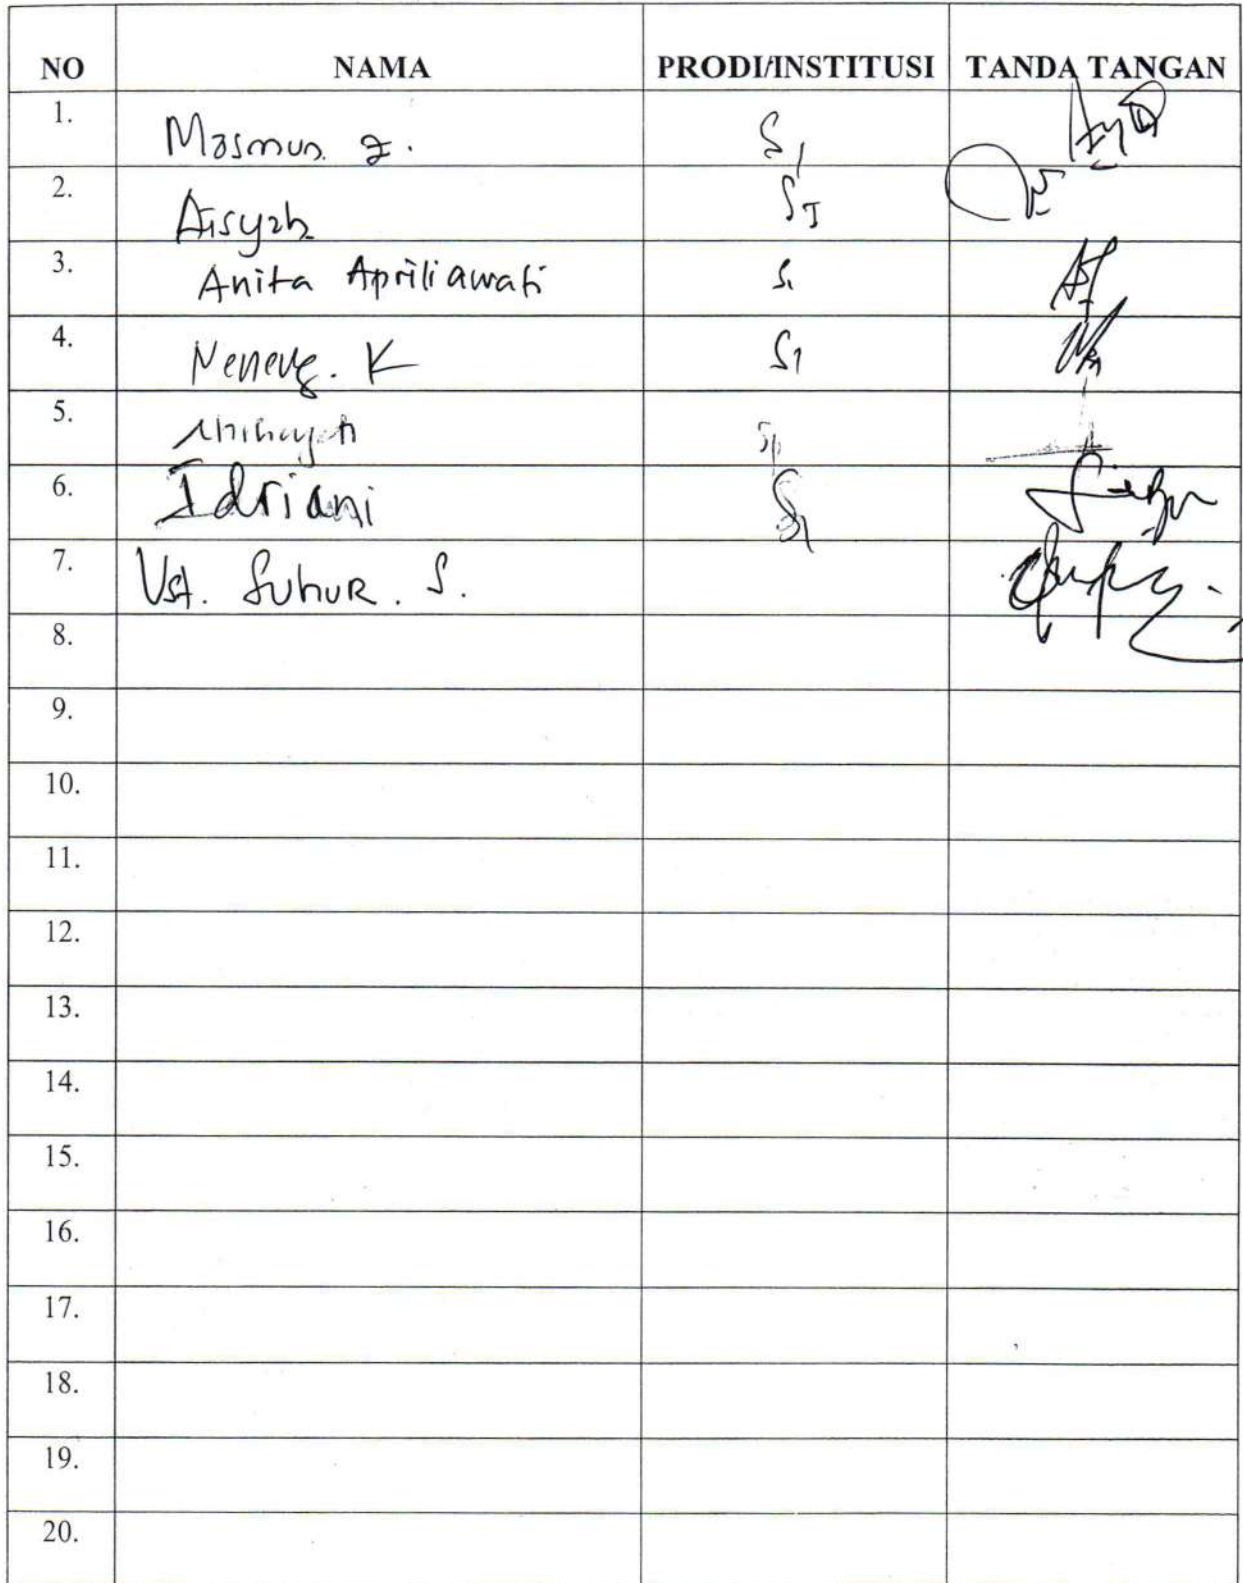 NO NAMA PRODI/INSTITUSI TANDA TANGAN
1. Masmun Z. S1
2. Aisyah S1
3. Anita Apriliawati S1
4. Neneng. K S1
5.
6. Idriani S1
7. Ust. Suhur. S.
8.
9.
10.
11.
12.
13.
14.
15.
16.
17.
18.
19.
20.